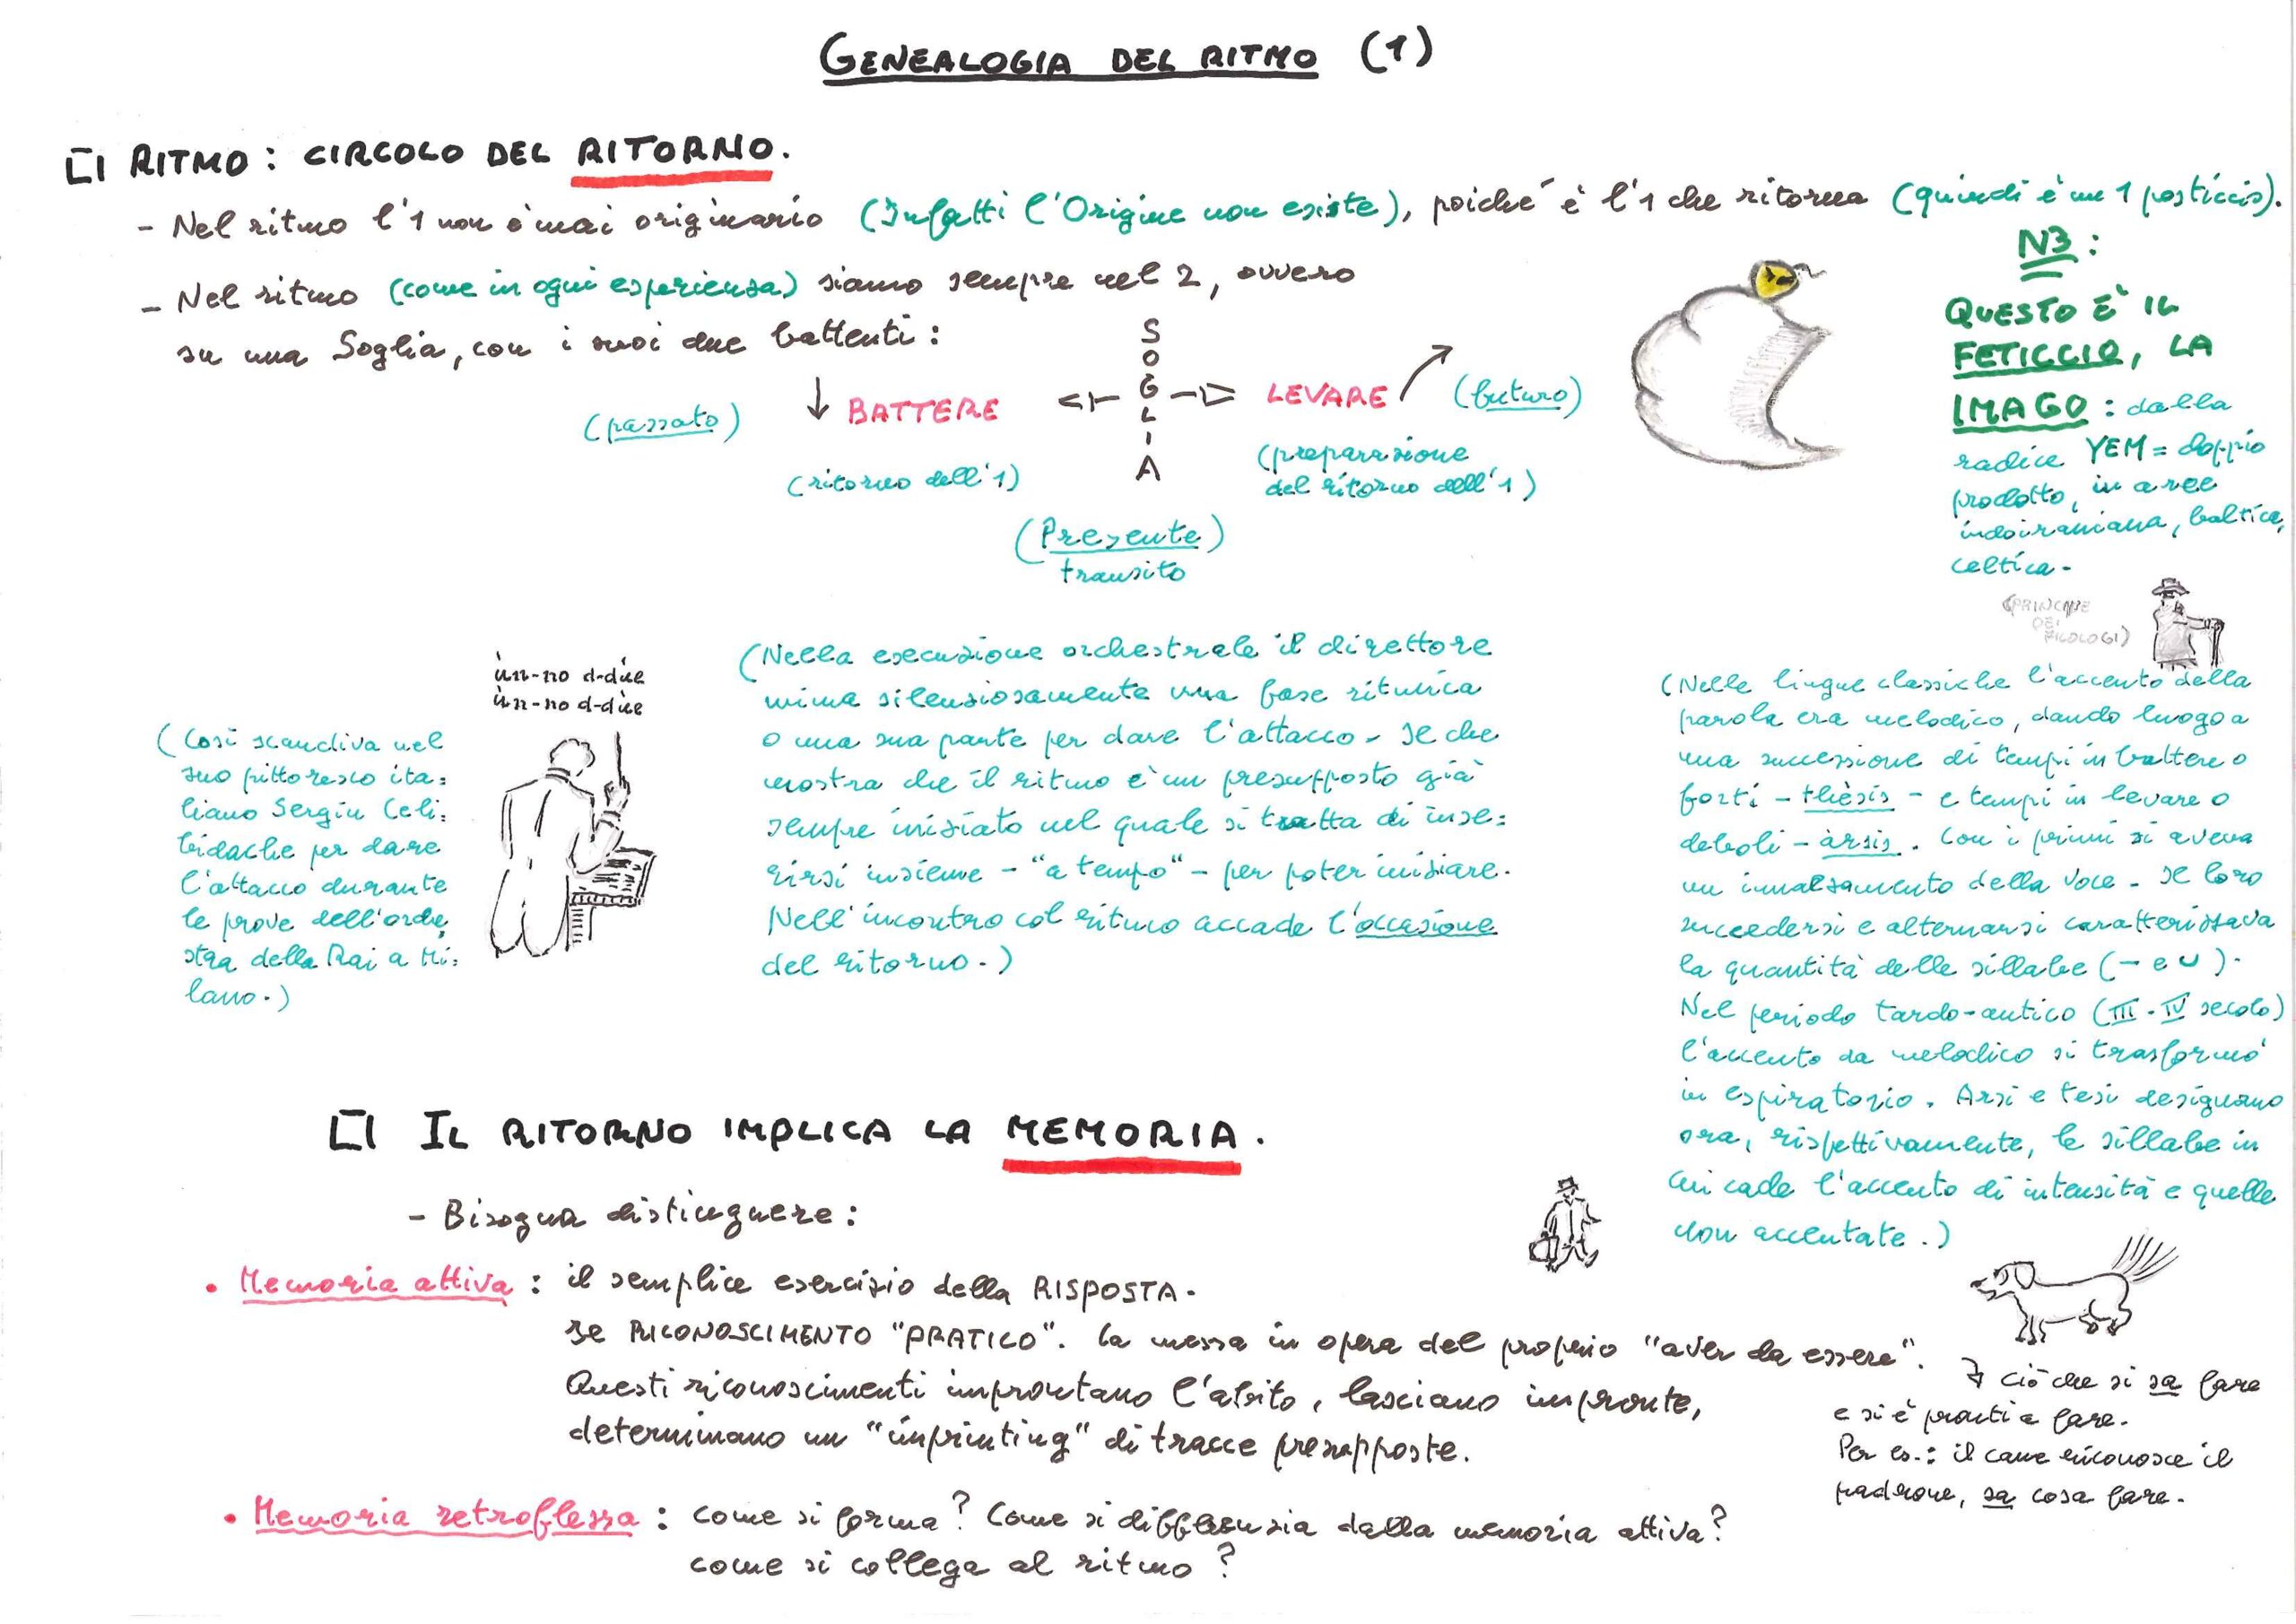 GENEALOGIA DEL RITMO (1)
RITMO: CIRCOLO DEL RITORNO.
- Nel ritmo l'1 non è mai originario (Infatti l'Origine non esiste), poiché è l'1 che ritorna (quindi è un 1 posticcio).
- Nel ritmo (come in ogni esperienza) siamo sempre nel 2, ovvero
su una Soglia, con i suoi due battenti:
SOGLIA
(passato) ↓ BATTERE LEVARE (futuro)
(ritorno dell'1)
(preparazione
del ritorno dell'1)
(Presente)
transito
NB:
QUESTO È IL
FETICCIO, LA
IMAGO: dalla
radice YEM = doppio
prodotto, in aree
indoiraniana, baltica,
celtica.
(PRINCIPE
DEI
FILOLOGI)
ùn-no d-dùe
ùn-no d-dùe
(Così scandiva nel
suo pittoresco ita=
liano Sergiu Celi=
bidache per dare
l'attacco durante
le prove dell'orche
stra della Rai a Mi=
lano.)
(Nella esecuzione orchestrale il direttore
mima silenziosamente una fase ritmica
o una sua parte per dare l'attacco. Il che
mostra che il ritmo è un presupposto già
sempre iniziato nel quale si tratta di inse=
rirsi insieme - "a tempo" - per poter iniziare.
Nell'incontro col ritmo accade l'occasione
del ritorno.)
(Nelle lingue classiche l'accento della
parola era melodico, dando luogo a
una successione di tempi in battere o
forti - thèsis - e tempi in levare o
deboli - àrsis. Con i primi si aveva
un innalzamento della voce. Il loro
succedersi e alternarsi caratterizzava
la quantità delle sillabe (- e ∪).
Nel periodo tardo-antico (III - IV secolo)
l'accento da melodico si trasformò
in espiratorio. Arsi e tesi designano
ora, rispettivamente, le sillabe in
cui cade l'accento di intensità e quelle
non accentate.)
IL RITORNO IMPLICA LA MEMORIA.
- Bisogna distinguere:
• Memoria attiva: il semplice esercizio della RISPOSTA.
Il RICONOSCIMENTO "PRATICO". La messa in opera del proprio "aver da essere".
Questi riconoscimenti improntano l'abito, lasciano impronte,
determinano un "imprinting" di tracce presupposte.
ciò che si sa fare
e si è pronti a fare.
Per es.: il cane riconosce il
padrone, sa cosa fare.
• Memoria retroflessa: come si forma? Come si differenzia dalla memoria attiva?
come si collega al ritmo?